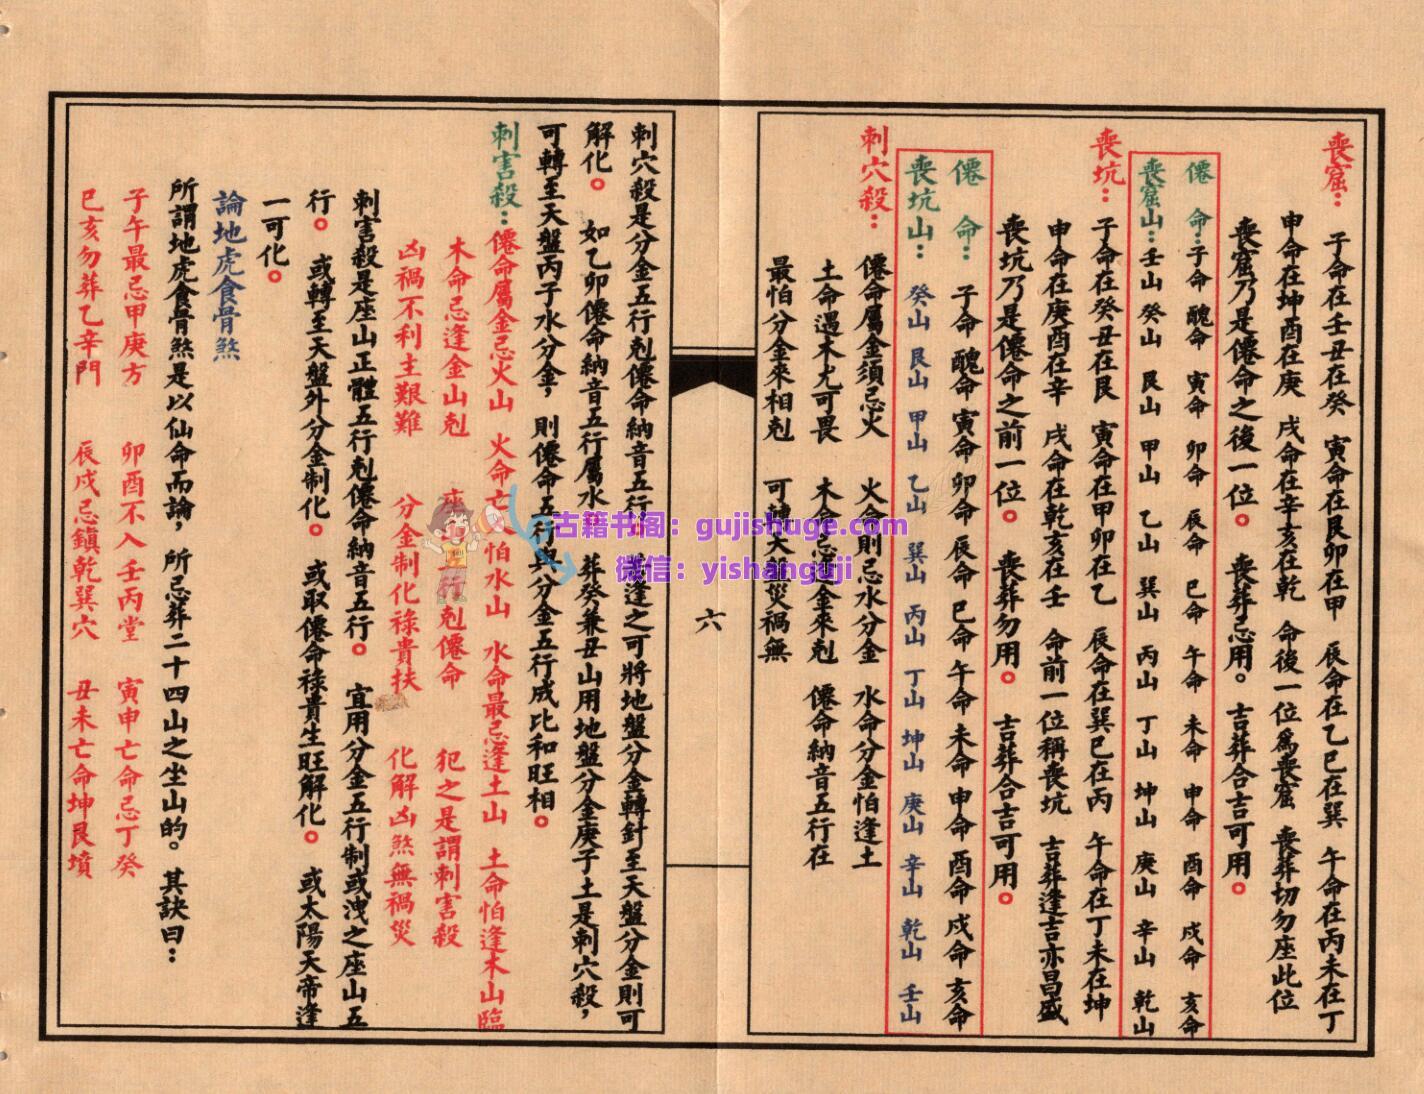 喪窟：
子命在壬丑在癸　寅命在艮卯在甲　辰命在乙巳在巽　午命在丙未在丁
申命在坤酉在庚　戌命在辛亥在乾　命後一位為喪窟　喪葬切勿座此位
喪窟乃是僊命之後一位。　喪葬忌用。吉葬合吉可用。
僊　命：子命　醜命　寅命　卯命　辰命　巳命　午命　未命　申命　酉命　戌命　亥命
喪窟山：壬山　癸山　艮山　甲山　乙山　巽山　丙山　丁山　坤山　庚山　辛山　乾山
喪坑：子命在癸丑在艮　寅命在甲卯在乙　辰命在巽巳在丙　午命在丁未在坤
申命在庚酉在辛　戌命在乾亥在壬　命前一位稱喪坑　吉葬逢吉亦昌盛
喪坑乃是僊命之前一位。　喪葬勿用。　吉葬合吉可用。
僊　命：　子命　醜命　寅命　卯命　辰命　巳命　午命　未命　申命　酉命　戌命　亥命
喪坑山：　癸山　艮山　甲山　乙山　巽山　丙山　丁山　坤山　庚山　辛山　乾山　壬山
刺穴殺：　僊命屬金須忌火　火命則忌水分金　水命分金怕逢土
土命遇木尤可畏　木命忌逢金來剋　僊命納音五行在
最怕分金來相剋　可轉天盤災禍無
六
刺穴殺是分金五行剋僊命納音五行。　逢之可將地盤分金轉針至天盤分金則可
解化。　如乙卯僊命納音五行屬水　葬癸兼丑山用地盤分金庚子土是刺穴殺，
可轉至天盤丙子水分金，　則僊命五行與分金五行成比和旺相。
刺害殺：僊命屬金忌火山　火命亡怕水山　水命最忌逢土山　土命怕逢木山臨
木命忌逢金山剋　座行剋僊命　犯之是謂刺害殺
凶禍不利主艱難　分金制化祿貴扶　化解凶煞無禍災
刺害殺是座山正體五行剋僊命納音五行。　宜用分金五行制或洩之座山五
行。　或轉至天盤外分金制化。　或取僊命祿貴生旺解化。　或太陽天帝逢
一可化。
論地虎食骨煞
所謂地虎食骨煞是以仙命而論，　所忌葬二十四山之坐山的。　其訣曰：
子午最忌甲庚方　卯酉不入壬丙堂　寅申亡命忌丁癸
巳亥勿葬乙辛門　辰戌忌鎮乾巽穴　丑未亡命坤艮墳
古籍书阁：gujishuge.com
微信：yishanguji